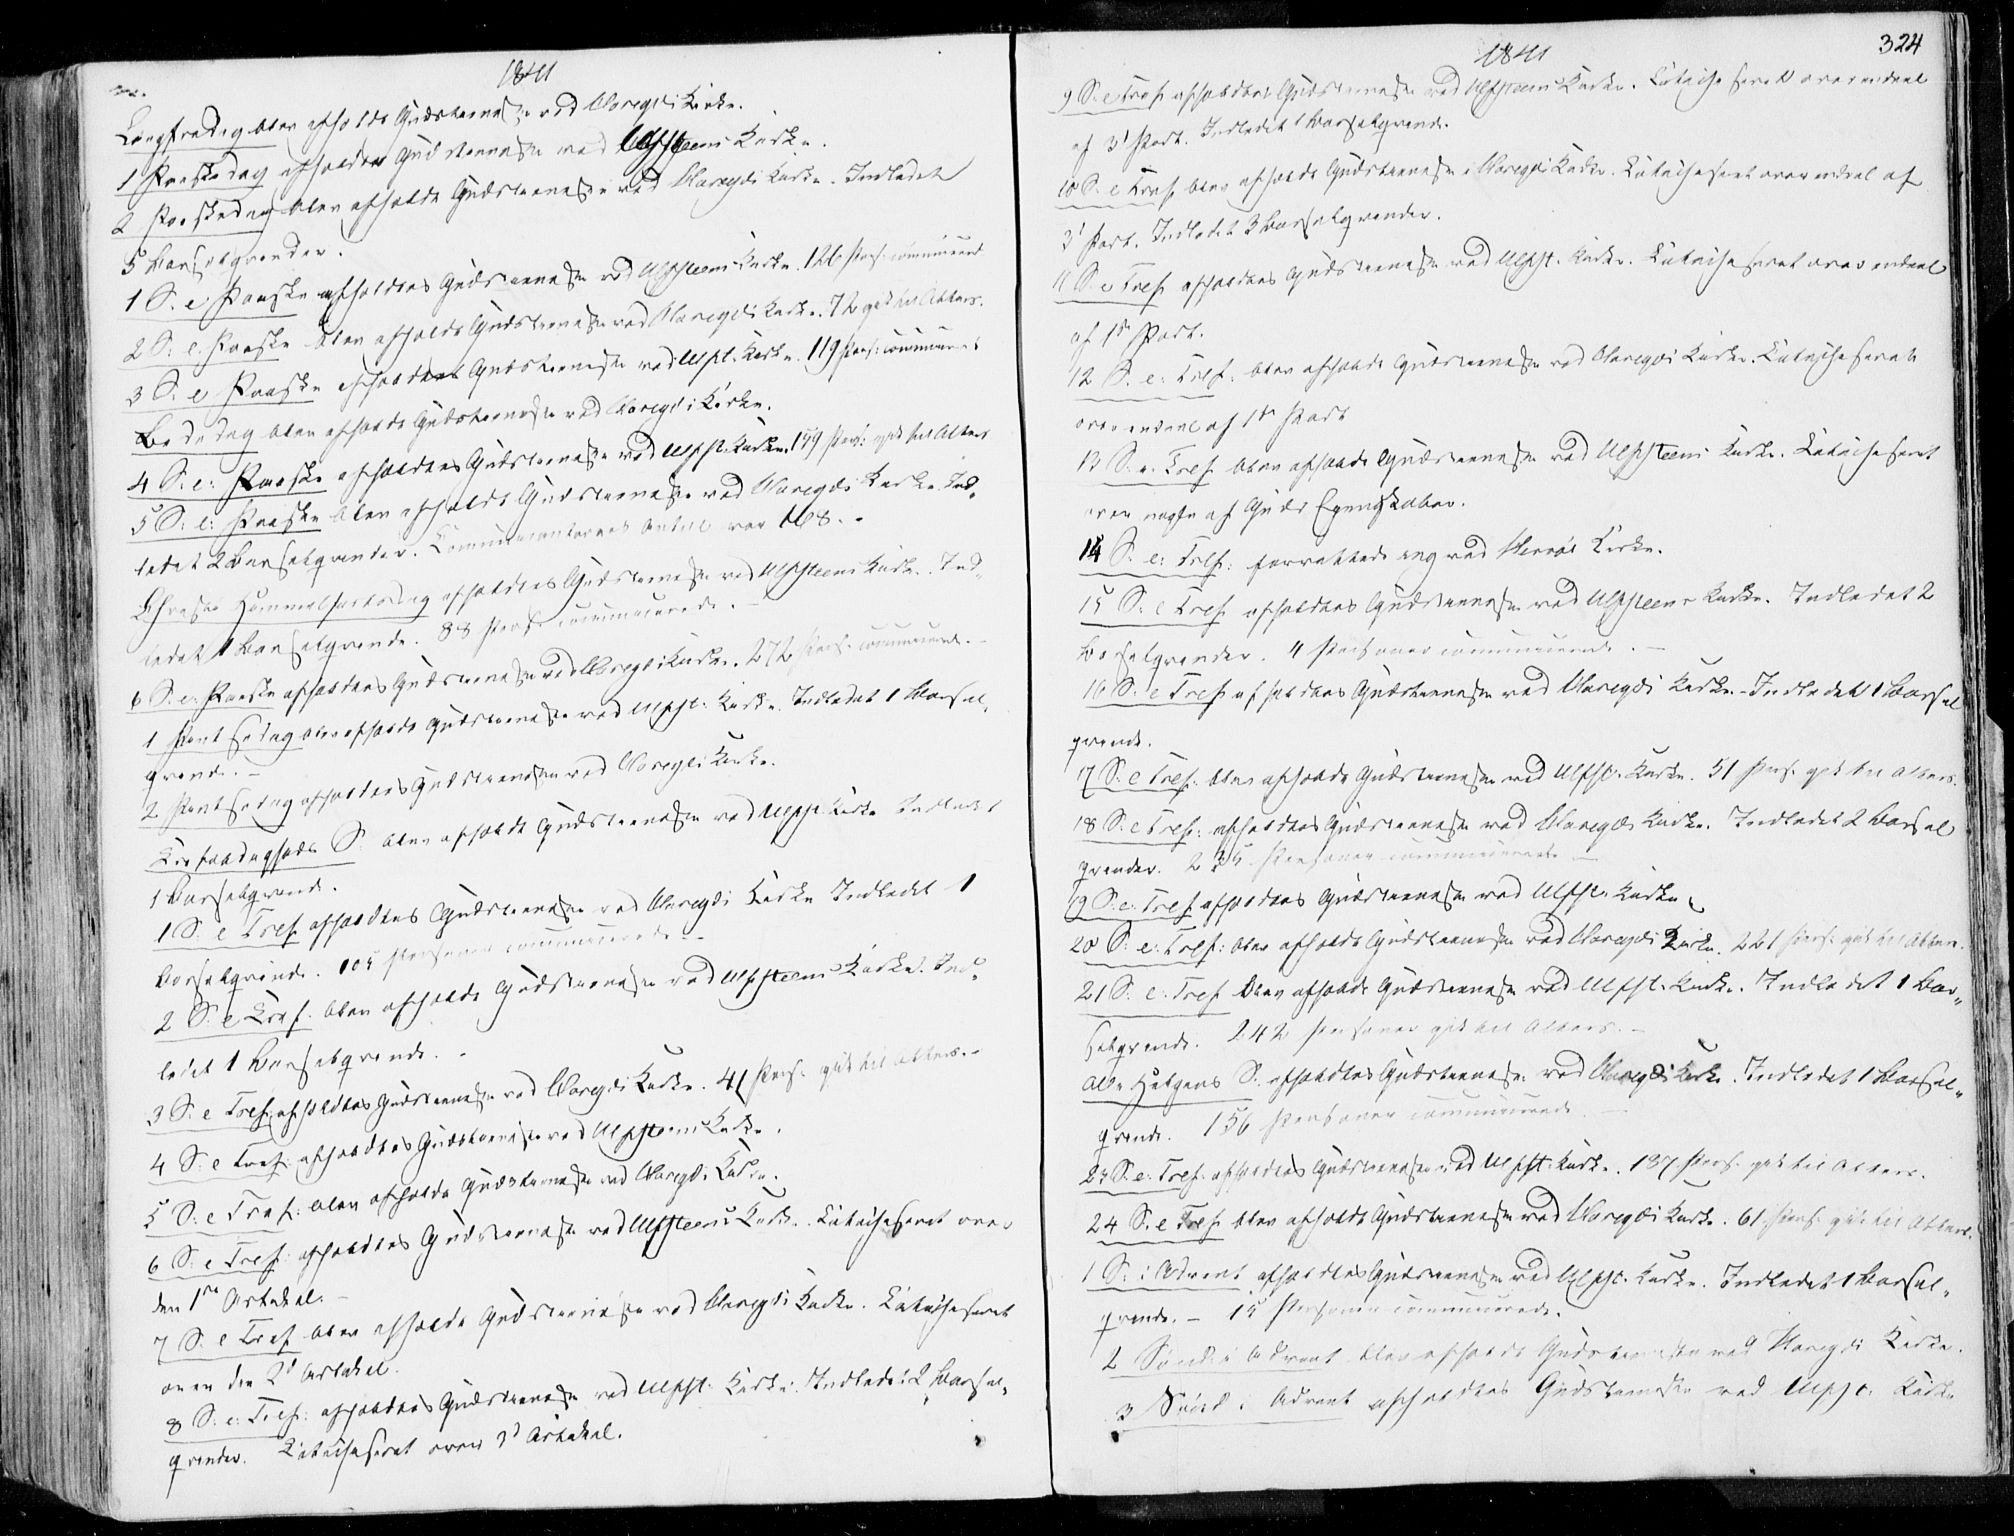 1841
Langfredag blev afholdt Gudstieneste ved Haregds Kirke.
1 Paaskedag afholdtes Gudstieneste ved Ulfsteens Kirke.
2 Paaskedag blev afholdt Gudstieneste ved Haregds Kirke. Indledet
5 Barselqvinder.
1 S. e. Paaske afholdtes Gudstieneste ved Ulfsteens Kirke. 126 Pers: communicered
2 S: e. Paaske blev afholdt Gudstieneste ved Haregds Kirke. 72 gik til Alters.
3 S. e. Paaske afholdtes Gudstieneste ved Ulfst. Kirke. 119 Pers: communicered
Bededag blev afholdt Gudstieneste ved Haregds Kirke.
4 S: e: Paaske afholdtes Gudstieneste ved Ulfst. Kirke. 159 Pers: gik til Alters
5 S: e: Paaske blev afholdt Gudstieneste ved Haregds Kirke. Ind-
ledet 2 Barselqvinder. Communicanternes Antal var 168.
Christi Himmelfartsdag afholdtes Gudstieneste ved Ulfsteens Kirke. Ind-
ledet 1 Barselqvinde. 88 Pers: communicerede.
6 S. e: Paaske afholdtes Gudstieneste ved Haregds Kirke. 272 Pers: communicered.
1 Pintsedag blev afholdt Gudstieneste ved Ulfst. Kirke. Indledet 1 Barsel-
qvinde.
2 Pintsedag afholdtes Gudstieneste ved Haregds Kirke.
Trefoldigheds S. blev afholdt Gudstieneste ved Ulfst Kirke Indledet
1 Barselqvinde.
1 S: e Tref afholdtes Gudstieneste ved Haregds Kirke Indledet 1
Barselqvinde. 105 Personer communicerede.
2 S: e Tref. blev afholdt Gudstieneste ved Ulfsteens Kirke. Ind-
ledet 1 Barselqvinde.
3 S: e Tref: afholdtes Gudstieneste ved Haregds Kirke. 41 Pers: gik til Alters.
4 S: e Tref: afholdtes Gudstieneste ved Ulfsteens Kirke.
5 S: e Tref: blev afholdt Gudstieneste ved Haregds Kirke.
6 S: e Tref: afholdtes Gudstieneste ved Ulfsteens Kirke. Katechiseret over
den 1ste Artikel.
7 S. e Tref blev afholdt Gudstieneste ved Haregds Kirke. Katechiseret
over den 2d Artikel.
8 S: e: Tref: afholdtes Gudstieneste ved Ulfst. Kirke. Indledet 2 Barsel-
qvinder. Katechiseret over 3d Artikel.
1841
324
9 S. e Tref afholdtes Gudstieneste ved Ulfsteens Kirke. Katechiseret over endeel
af 3d Part. Indledet 1 Barselqvinde.
10 S. e Tref blev afholdt Gudstieneste i Haregds Kirke. Katechiseret over endeel af
3d Part. Indledet 3 Barselqvinder.
11 S. e Tref afholdtes Gudstieneste ved Ulfst. Kirke. Katechiseret over endeel
af 1ste Part.
12 S. e: Tref: blev afholdt Gudstieneste ved Haregds Kirke. Katechiseret
over endeel af 1ste Part
13 S. e. Tref blev afholdt Gudstieneste ved Ulfsteens Kirke. Katechiseret
over nogle af Guds Egenskaber.
14 S: e: Tref: forrettede jeg ved Herröe Kirke.
15 S: e Tref afholdtes Gudstieneste ved Ulfsteens Kirke. Indledet 2
Barselqvinder. 4 Personer communicerede.
16 S: e Tref afholdtes Gudstieneste ved Haregds Kirke. Indledet 1 Barsel
qvinde.
17 S: e Tref. blev afholdt Gudstieneste ved Ulfst. Kirke. 51 Pers: gik til Alters.
18 S: e Tref: afholdtes Gudstieneste ved Haregds Kirke. Indledet 2 Barsel
qvinder. 235 Personer communicerede.
19 S. e: Tref afholdtes Gudstieneste ved Ulfst. Kirke.
20 S: e: Tref: blev afholdt Gudstieneste ved Haregds Kirke. 221 Pers: gik til Alters.
21 S: e: Tref blev afholdt Gudstieneste ved Ulfst. Kirke. Indledet 1 Bar-
selqvinde. 242 Personer gik til Alters.
Alle Helgens S: afholdtes Gudstieneste ved Haregds Kirke. Indledet 1 Barsel-
qvinde. 156 Personer communicerede.
23 S: e: Tref: afholdtes Gudstieneste ved Ulfst. Kirke. 187 Pers: gik til Alters.
24 S: e Tref blev afholdt Gudstieneste ved Haregds Kirke. 61 Pers: gik til Alters.
1 S: i Advent afholdtes Gudstieneste ved Ulfst. Kirke. Indledet 1 Barsel-
qvinde. 15 Personer communicerede.
2 Sönd: i Advent blev afholdt Gudstieneste ved Haregds Kirke.
3 Sönd. i Advent afholdtes Gudstieneste ved Ulfst. Kirke